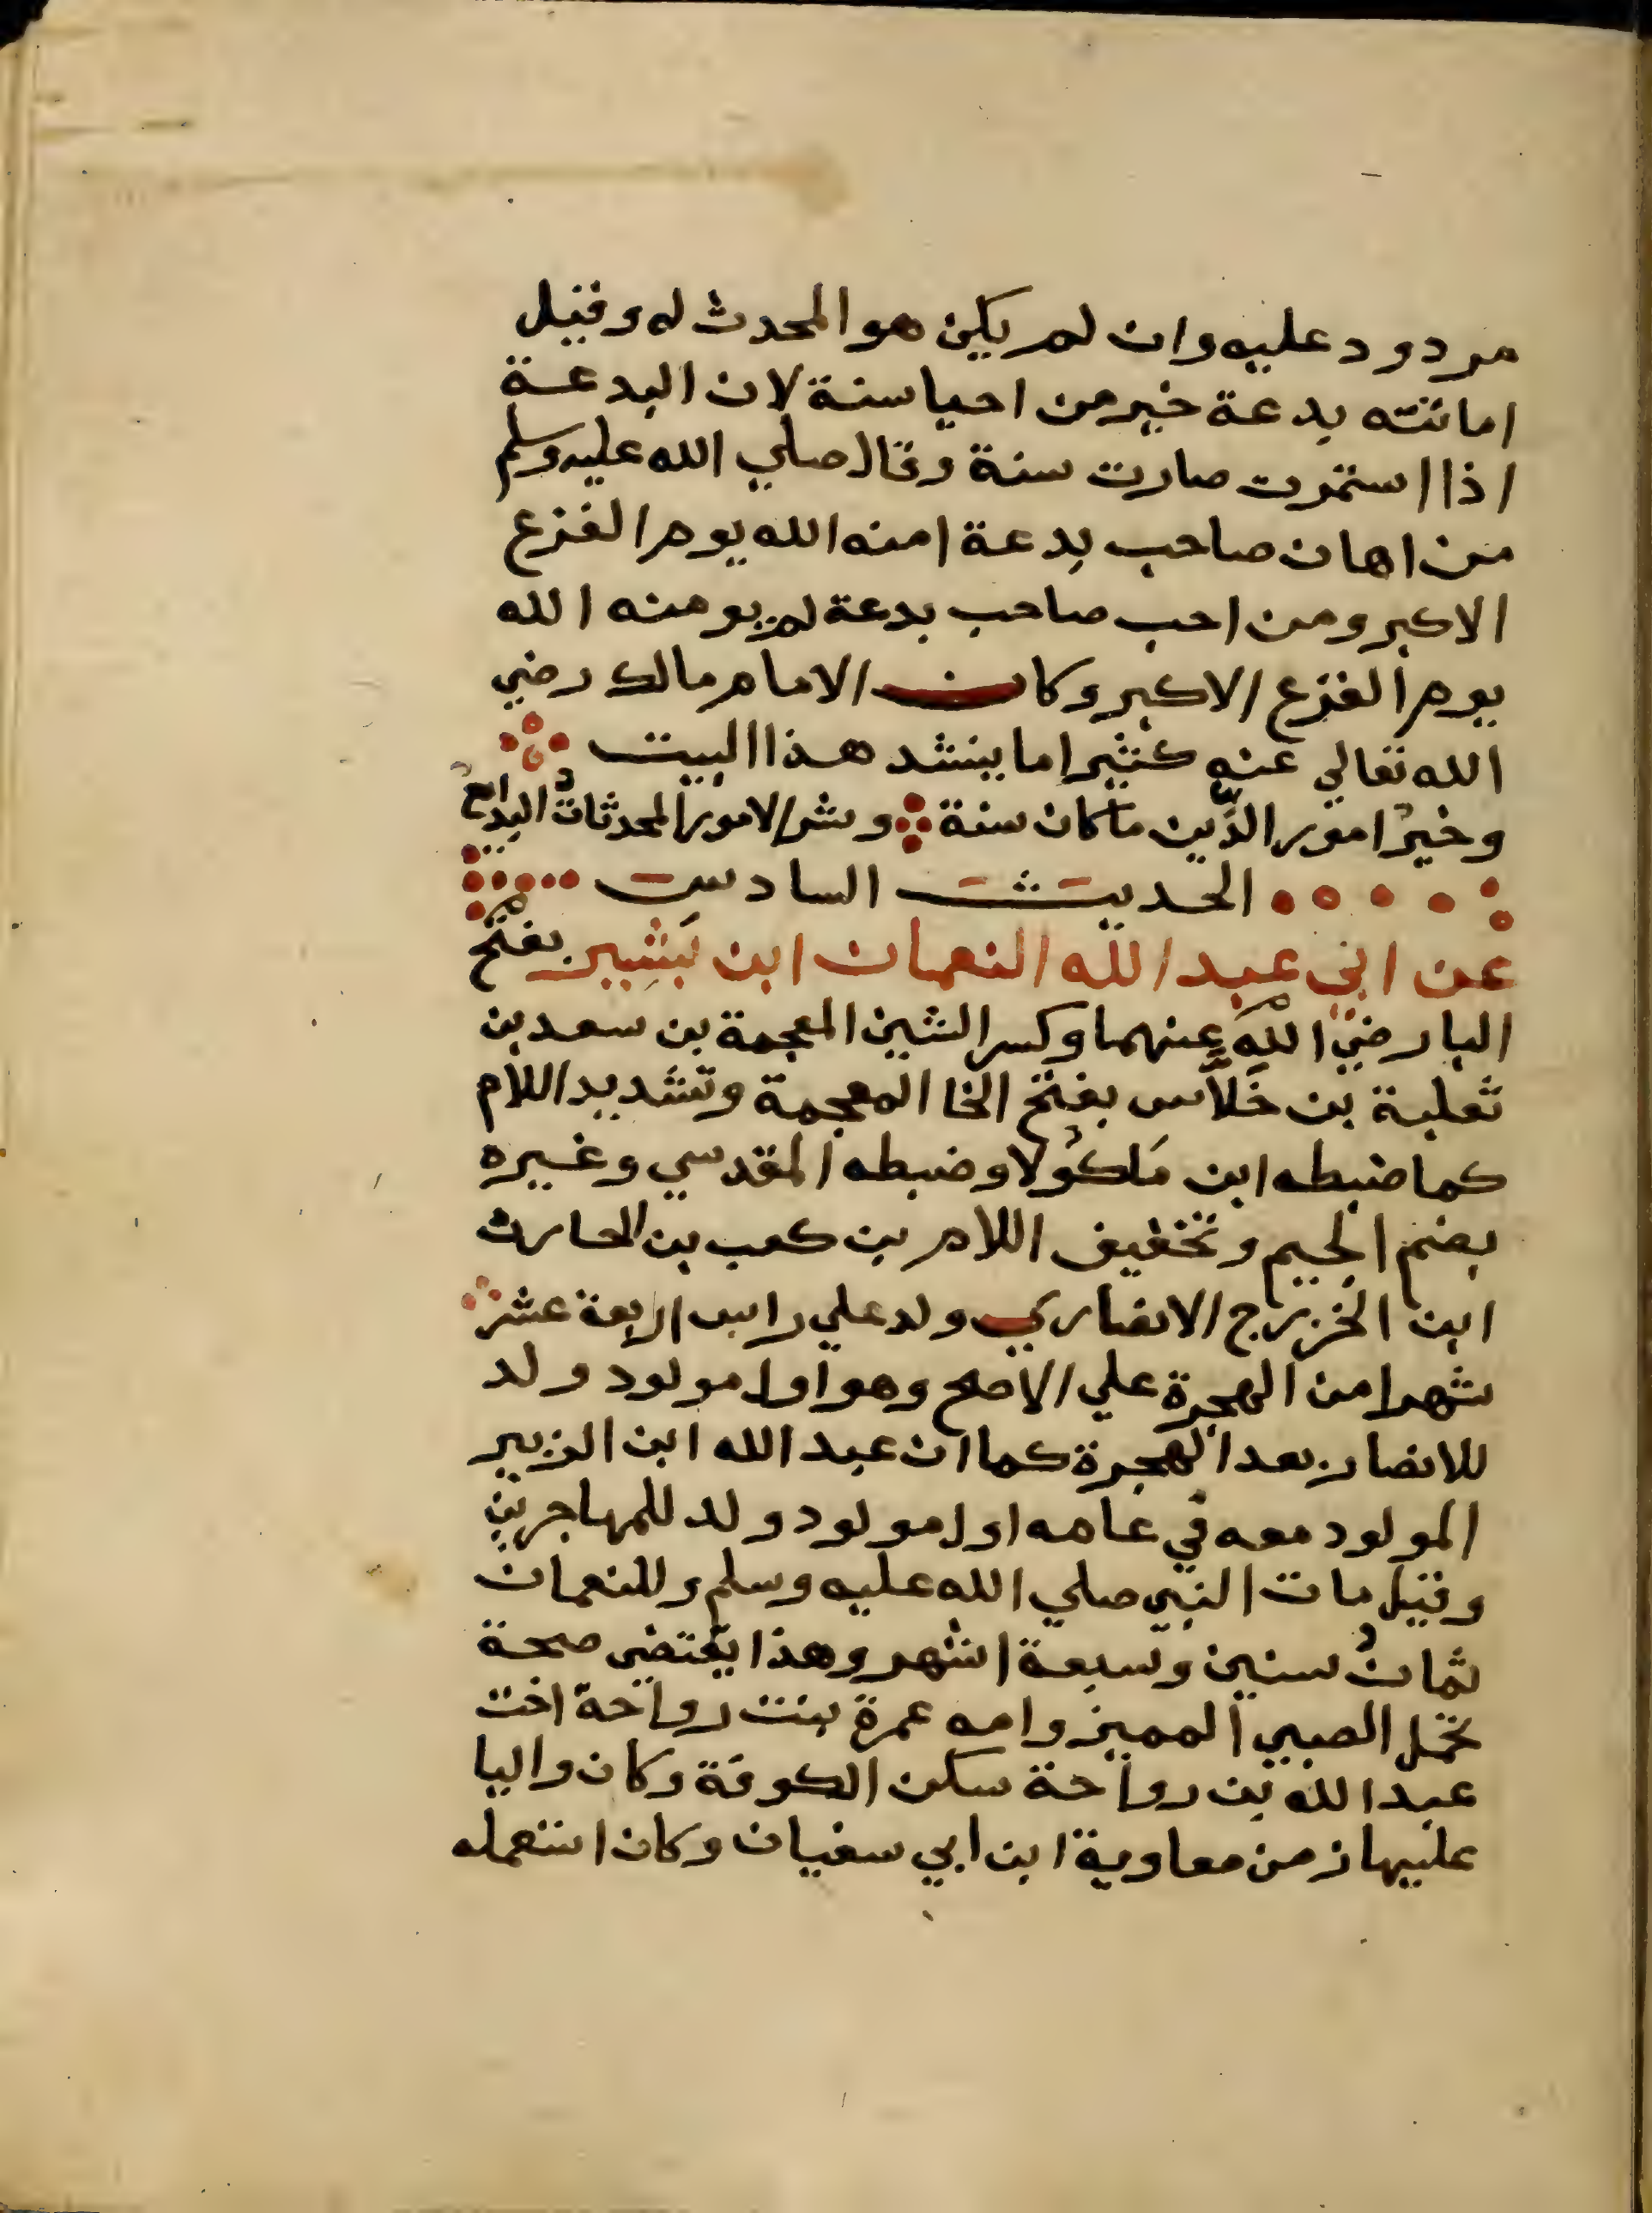 مردود عليه وان لم يكن هو المحدث له وقيل
اماتته بدعة خير من احيا سنة لان البدعة
اذا استمرت صارت سنة وقال صلي الله عليه وسلم
من اهان صاحب بدعة امنه الله يوم الفزع
الاكبر ومن احب صاحب بدعة لم يومنه الله
يوم الفزع الاكبر وكان الامام مالك رضي
الله تعالي عنه كثيرا ما ينشد هذا البيت
وخيرُ امور الدّين ما كان سنة وشر الامور المحدثاتُ البدايعُ
الحديث السادس
عن ابي عبد الله النعمان ابن بَشِير بفتح
البا رضي الله عنهما وكسر الشين المعجمة بن سعد بن
ثعلبة بن خَلَّاس بفتح الخا المعجمة وتشديد اللام
كما ضبطه ابن مَاكُولا وضبطه المقدسي وغيره
بضم الجيم وتخفيف اللام بن كعب بن الحارث
ابن الخزرج الانصاري ولد علي راس اربعة عشر
شهرا من الهجرة علي الاصح وهو اول مولود ولد
للانصار بعد الهجرة كما ان عبد الله ابن الزبير
المولود معه في عامه اول مولود ولد للمهاجرين
وقيل مات النبي صلي الله عليه وسلم وللنعمان
ثمانُ سنين وسبعة اشهر وهذا يقتضي صحة
تحمل الصبي المميز وامه عمرة بنت رواحة اخت
عبد الله بن رواحة سكن الكوفة وكان واليا
عليها زمن معاوية ابن ابي سفيان وكان استعمله